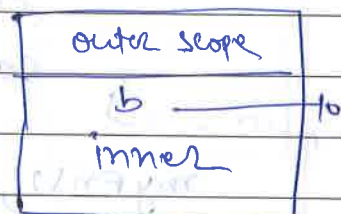 outer scope
b — 10
inner